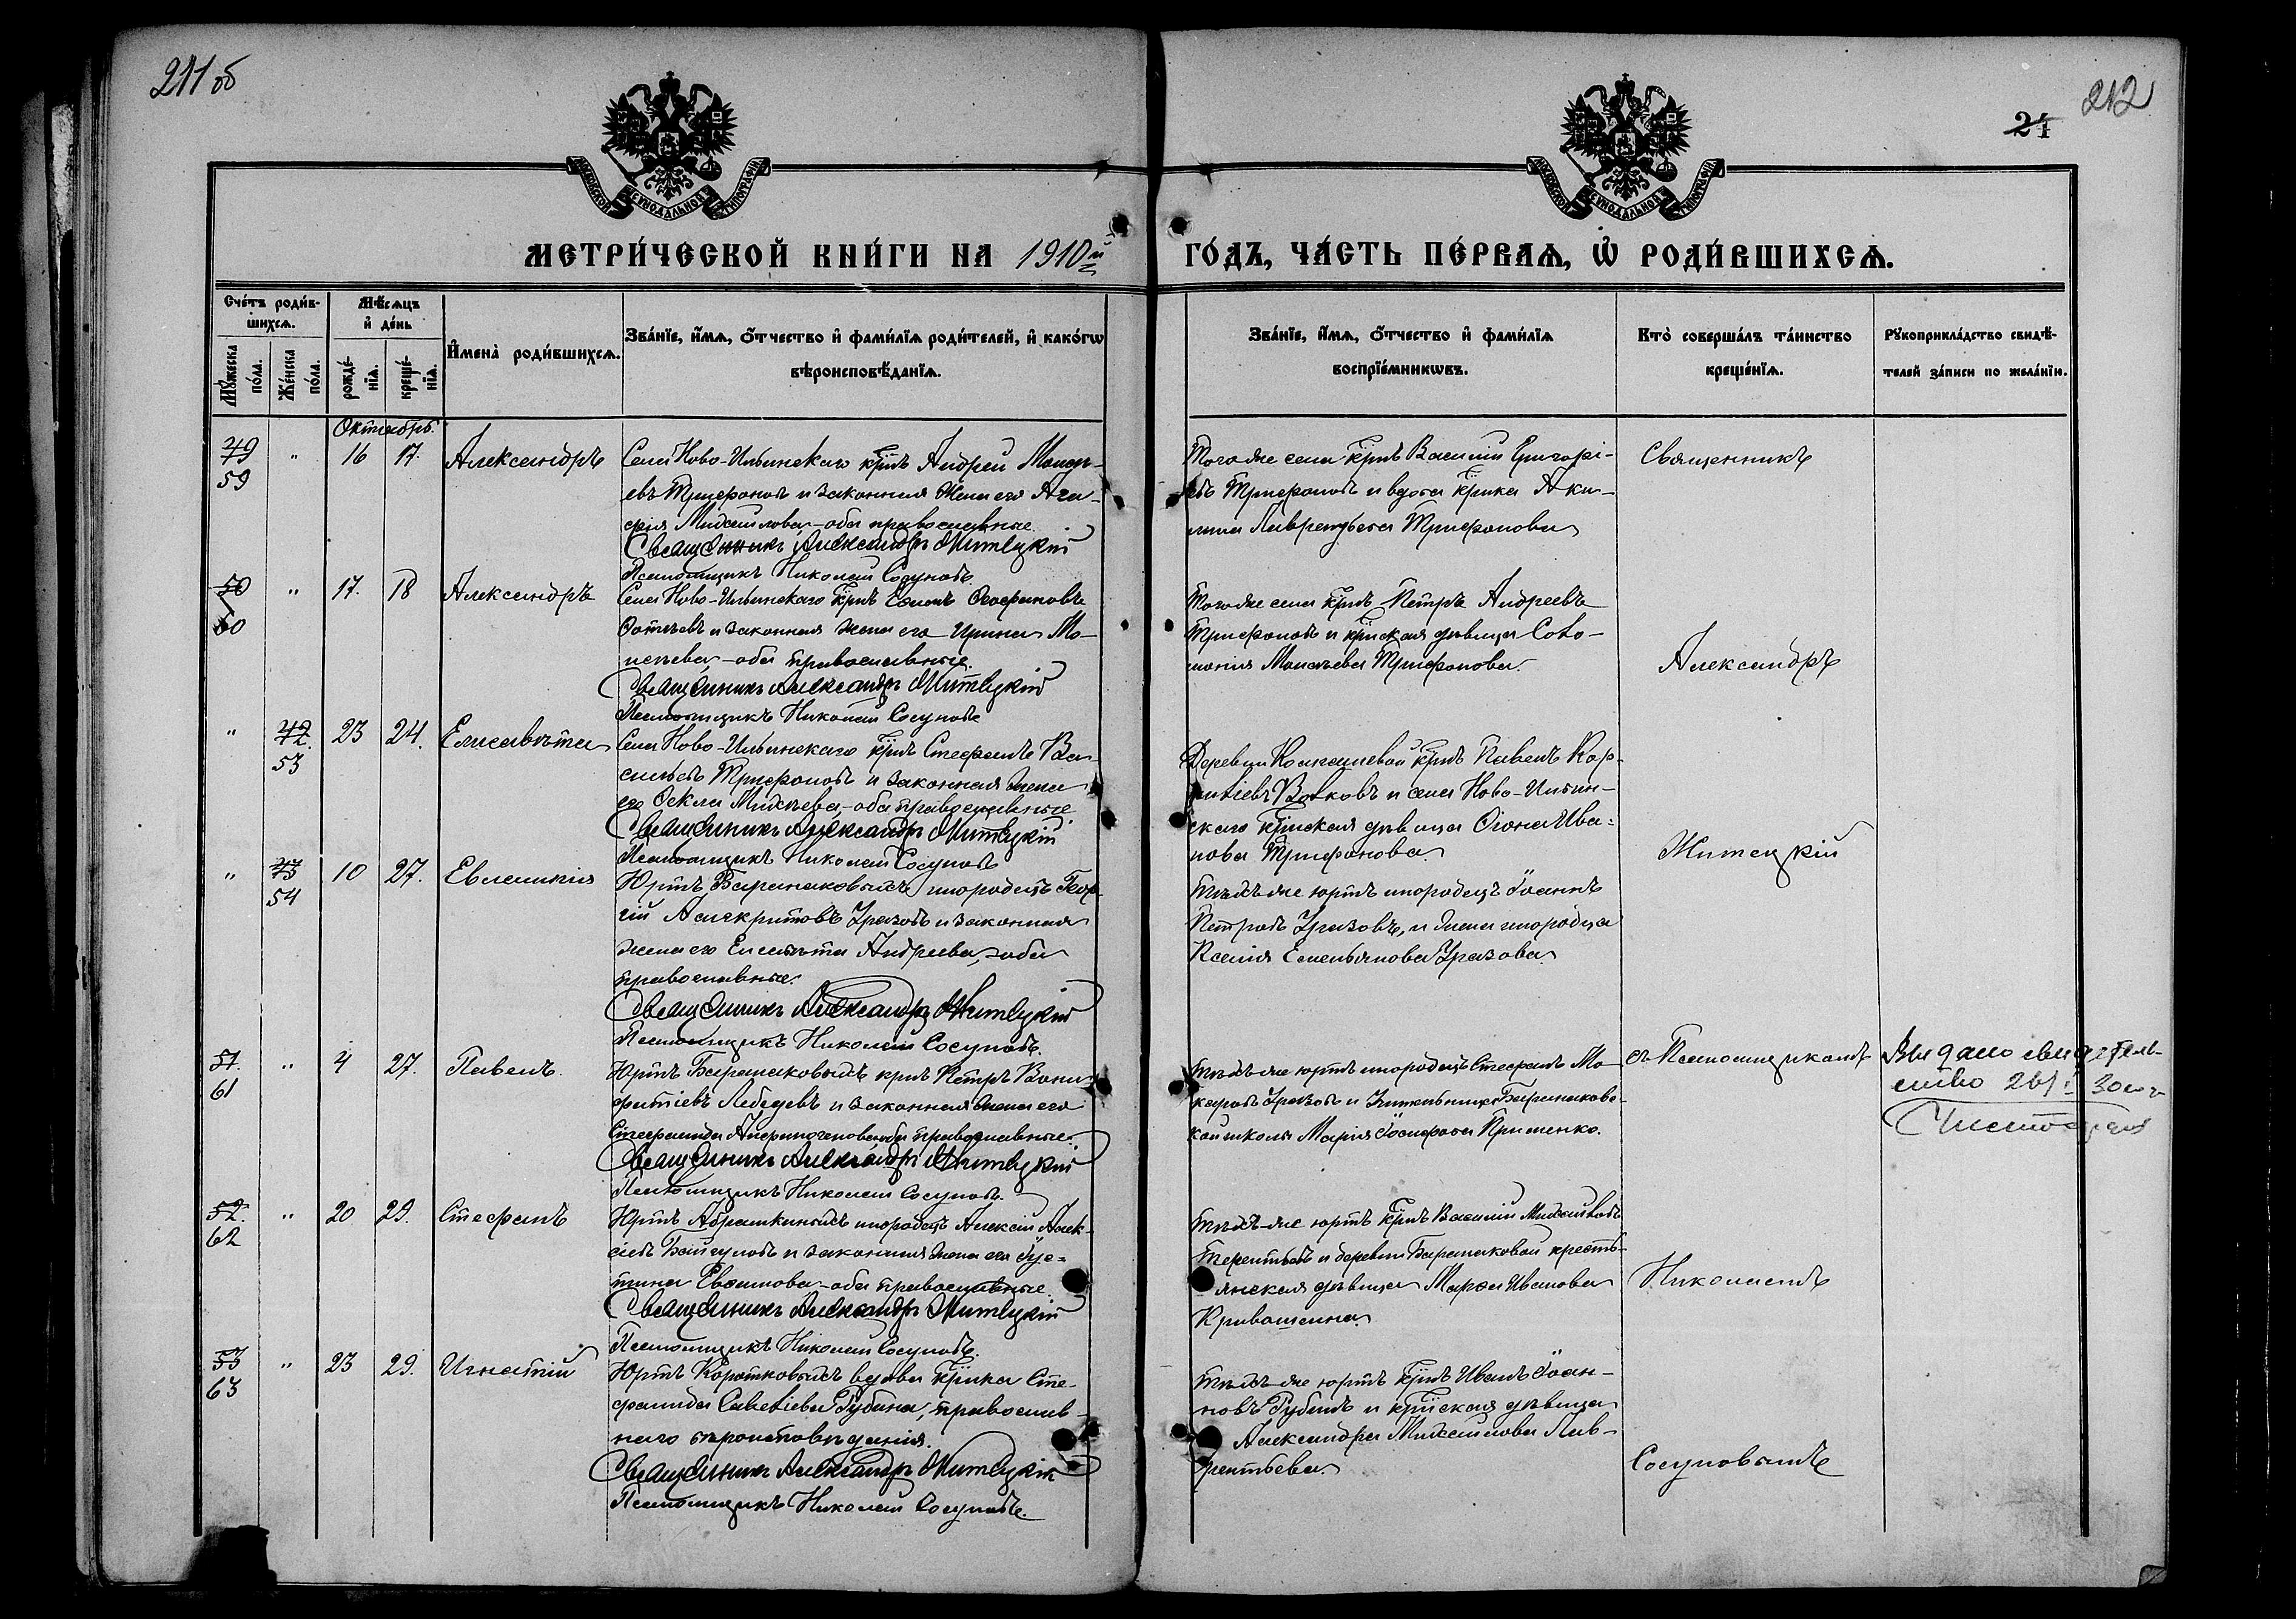 211 об
212
24
МЕТРИ́ЧЕСКОЙ КНИ́ГИ НА 1910й
ГО́ДЪ, ЧА́СТЬ ПЕ́РВАѦ, Ѡ҆ РОДИ́ВШИХСѦ.
Сче́тъ роди́в-
шихсѧ.
Мꙋ́жеска
по́ла.
Же́нска
по́ла.
Мѣ́сѧцъ
и҆ де́нь
рожде́-
нїѧ.
креще́-
нїѧ.
И҆мена̀ роди́вшихсѧ.
Зва́нїе, и҆́мѧ, ѻ҆́тчество и҆ фами́лїѧ роди́телей, и҆ како́гѡ
вѣроисповѣ́данїѧ.
Зва́нїе, и҆́мѧ, ѻ҆́тчество и҆ фами́лїѧ
воспрїе́мникѡвъ.
Кто̀ соверша́лъ та́инство
креще́нїѧ.
Рꙋкоприкла́дство свидѣ́-
телей за́писи по жела́нїю.
Октябрь.
49
59
"
16
17.
Александръ
Села Ново-Ильинскаго крнъ Андрей Моисе-
евъ Трифоновъ и законная жена его Ага-
фія Михаилова – оба православные.
Священникъ Александръ Житецкій
Псаломщикъ Николай Сосуновъ.
Того же села крнъ Василій Григорі-
евъ Трифоновъ и вдова крнка Аки-
лина Лаврентьева Трифонова
Священникъ
50
60
"
17.
18
Александръ
Села Ново-Ильинскаго крнъ Ефимъ
и законная жена его Ирина Мо-
исеева – оба православные.
Священникъ Александръ Житецкій
Псаломщикъ Николай Сосуновъ
Того же села крнъ Петръ Андреевъ
Трифоновъ и крнская дѣвица Соло-
монія Моисеева Трифонова.
Александръ
"
42.
53
23
24.
Елисавѣта
Села Ново-Ильинскаго крнъ Стефанъ Ва-
сильевъ Трифоновъ и законная жена
его Ѳекла Михѣева – оба православные
Священникъ Александръ Житецкій
Псаломщикъ Николай Сосуновъ
Деревни крнъ Павелъ Кор-
ниліевъ Волковъ и села Ново-Ильин-
скаго крнская дѣвица Ива-
нова Трифонова.
Житецкій
"
43
54
10
27.
Евлампія
Юртъ Баранаковыхъ инородецъ Геор-
гій Асигкритовъ Уразовъ и законная
жена его Елисавѣта Андреева, оба
православные.
Священникъ Александръ Житецкій
Псаломщикъ Николай Сосуновъ.
Тѣхъ же юртъ инородецъ Іоаннъ
Петровъ Уразовъ, и жена инородца
Ксенія Емельянова Уразова.
51.
61
"
4
27.
Павелъ.
Юртъ Баранаковыхъ крнъ Петръ Вони-
фатіевъ Лебедевъ и законная жена его
Стефанида Анфиногенова оба православные.
Священникъ Александръ Житецкій
Псаломщикъ Николай Сосуновъ.
Тѣхъ же юртъ инородецъ Стефанъ Мо-
каровъ Уразовъ и Учительница Баранаковс-
кой школы Марія Іосифова Примѣнко.
съ Псаломщикомъ
Выдано свидѣтель-
ство
52.
62
"
20
29.
Стефанъ
Юртъ Абрамкиныхъ инородецъ Алексій Алек-
сіевъ Байгуловъ и законная жена его Іус-
тина Евѳимова – оба православные.
Священникъ Александръ Житецкій
Псаломщикъ Николай Сосуновъ.
Тѣхъ-же юртъ крнъ Василій Михаиловъ
Терентьевъ и деревни Баранаковой кресть-
янская дѣвица Марѳа Иванова
Кривошеина.
Николаемъ
53
63
"
23
29.
Игнатій
Юртъ Коротковыхъ вдова крнка Сте-
фанида Савватіева Губина, православ-
наго вѣроисповѣданія.
Священникъ Александръ Житецкій
Псаломщикъ Николай Сосуновъ.
Тѣхъ же юртъ крнъ Иванъ Іоан-
новъ Губинъ и крнская дѣвица
Александра Михаилова Лав-
рентьева.
Сосуновымъ